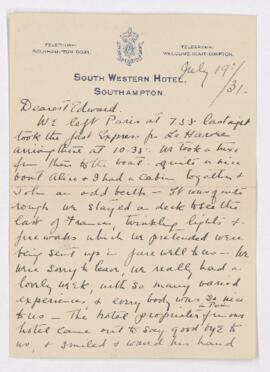 TELEPHONE
SOUTHAMPTON
TELEGRAMS
WELCOME, SOUTHAMPTON.
SOUTH WESTERN HOTEL.
SOUTHAMPTON.
July 19th
/31.
Dearest Edward.
We left Paris at 7.55 last night
took the fast Express for Le Havre
arriving there at 10.35. We took a taxi
from there to the boat. quite a nice
boat Alice & I had a cabin together &
John an odd berth – It was quite
rough we stayed on deck to see the
last of France, twinkling lights &
fire works which we pretended were
being sent up in farewell to us – We
were sorry to leave, we really had a
lovely week, with so many varied
experiences, & every body was so nice
to us – The hotel proprietor from our
in Paris
hotel came out to say good bye to
us, & smiled & waved his hand